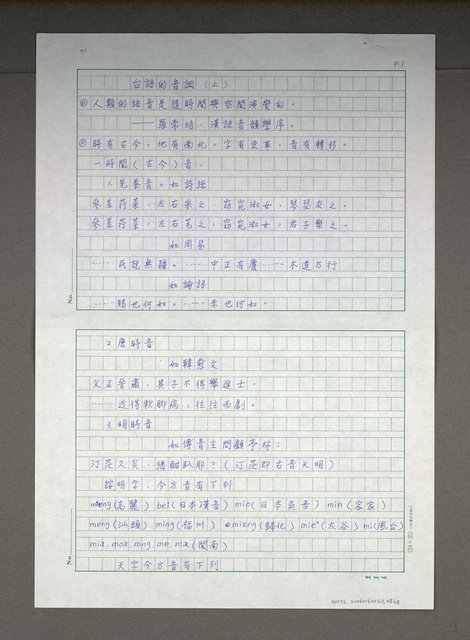 P.1
台語的音調（上）
◎人類的語音是隨時間與空間演變的。
——羅常培．漢語音韻學序。
◎時有古今，地有南北。字有更革，音有轉移。
一時間（古今）音．
1.先秦音。如詩經
參差荇菜，左右采之．窈窕淑女，琴瑟友之。
參差荇菜，左右芼之，窈窕淑女，君子樂之。
如周易
……民說無疆。……中正有慶……木道乃行
如論語
……賜也何如。……求也何如。
No.
2.唐時音
如韓愈文
父名晉肅．其子不得舉進士。
……近得軟脚病，往往而劇。
3.明時音
如傅青主問顧亭林：
汀茫久矣，猶酣臥耶？（汀茫即古音天明）
按明字，今方音有下列
meng(高麗) bei(日本漢音) mio(日本吳音) min (客家)
meng(汕頭) ming(福州) miæng(歸化) mie(太谷) mi(風台)
mia. moa. mng. me. ma (閩南)
天字今方音有下列
No.